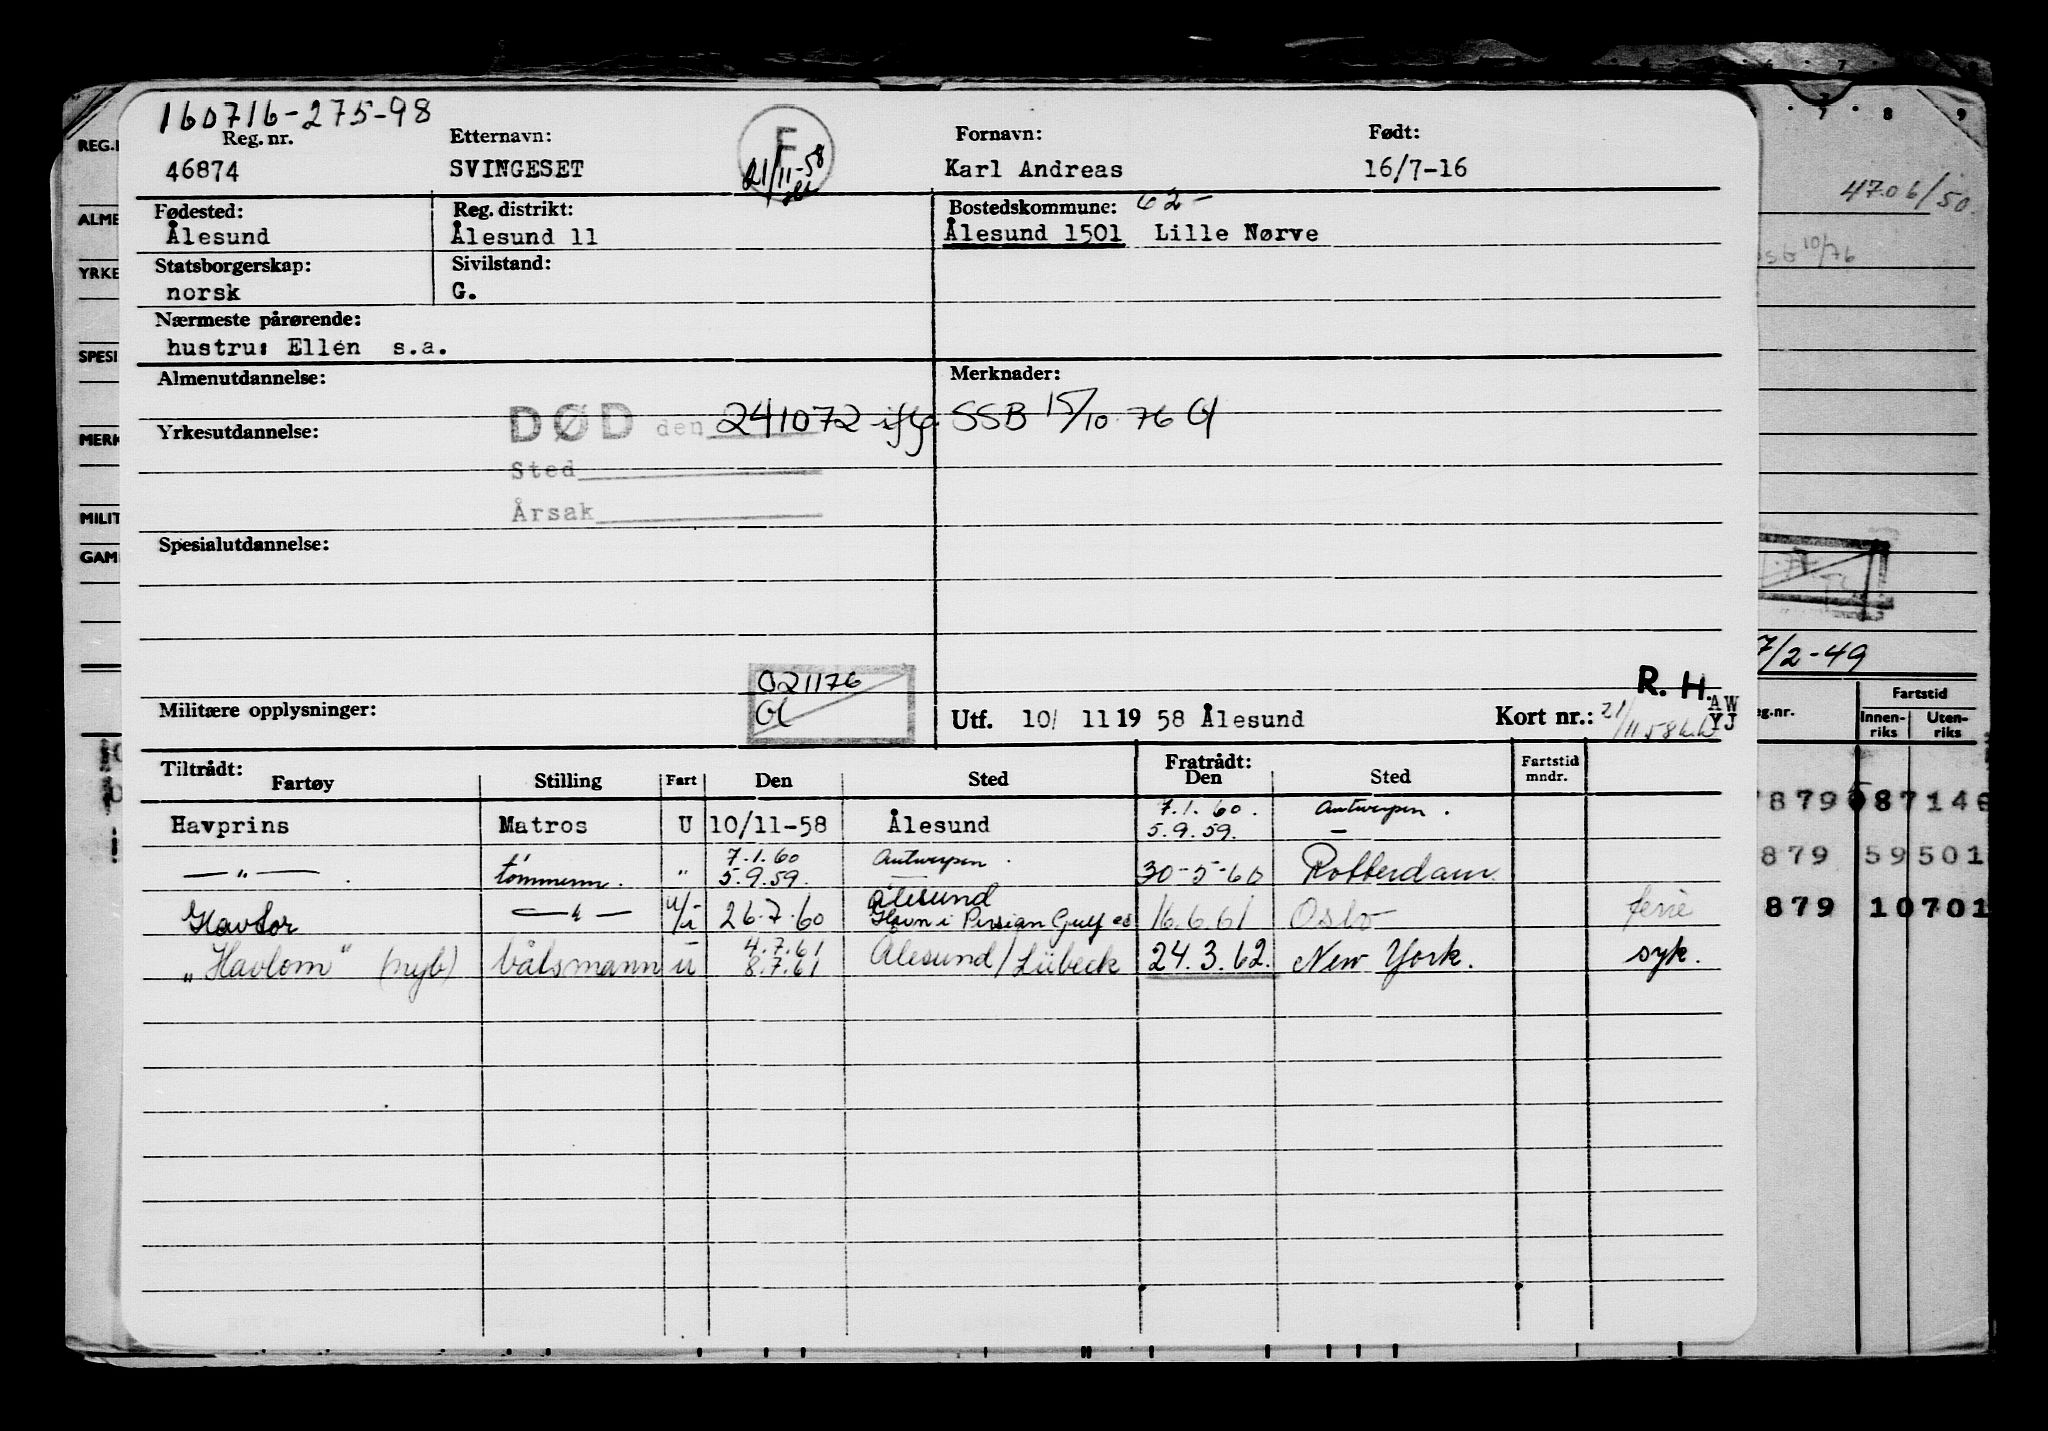 160716-275-98
Reg. nr. Etternavn: F Fornavn: Født:
46874 SVINGESET 21/11-58 Karl Andreas 16/7-16
Fødested: Reg. distrikt: Bostedskommune: 62-
Ålesund Ålesund 11 Ålesund 1501 Lille Nørve
Statsborgerskap: Sivilstand:
norsk G.
Nærmeste pårørende:
hustru: Ellen s.a.
Almenutdannelse: Merknader:
DØD den 241072 iflg. SSB 15/10-76 Gl
Yrkesutdannelse:
Sted
Årsak
Spesialutdannelse:
021176
Gl
R. H.
Militære opplysninger: Utf. 10/ 11 19 58 Ålesund Kort nr.: 21/11 58 AW
YJ
Tiltrådt: Fratrådt: Fartstid
Fartøy Stilling Fart Den Sted Den Sted mndr.
7.1.60. Antwerpen.
Havprins Matros U 10/11-58 Ålesund 5.9.59. —
7.1.60 Antwerpen.
— " — . tømmerm. " 5.9.59. — 30-5-60 Rotterdam.
Ålesund
Havtor — " — u/i 26.7.60 Havn i Persian Gulf ed 16.6.61 Oslo ferie
4.7.61
"Havlom" (nyb) båtsmann u 8.7.61 Ålesund/Lübeck 24.3.62. New York. syk.
REG.
ALME
YRKE
SPESI
MERK
MILIT
GAM
7 8 9
4706/50.
10/76
7/2-49
eg.nr. Fartstid
Innen-
riks Uten-
riks
879 087146
879 59501
879 10701